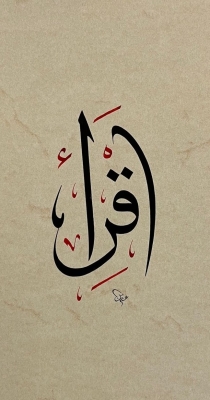 اقرأ